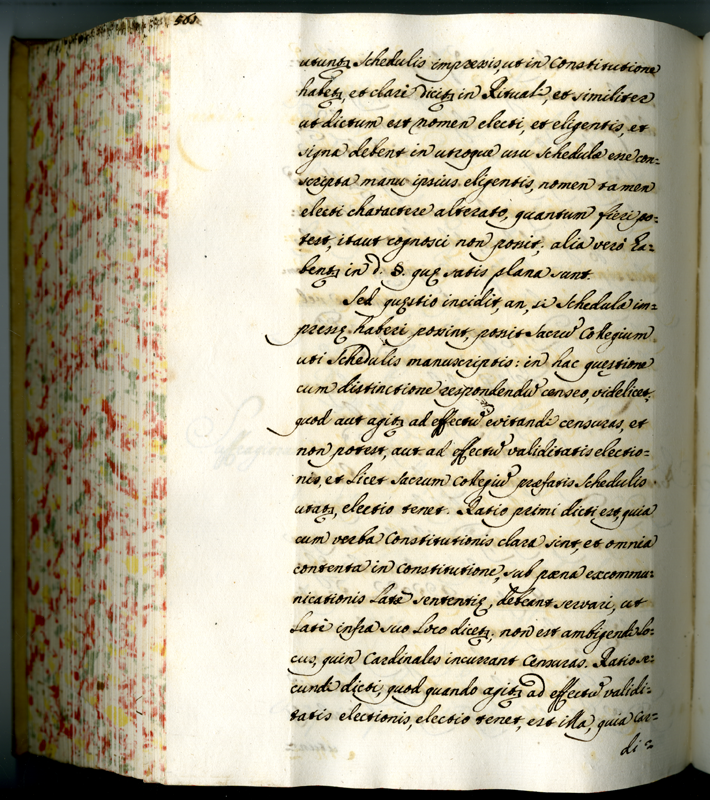 561
utunt⁊ Schedulis impressis, ut in Constitutione
habet⁊, et clarè dicit⁊ in Rituali, et similiter
ut dictum est nomen electi, et eligentis, et
signa debent in utroque usu Schedulæ esse con=
scripta manu ipsius eligentis, nomen tamen
electi charactere alterato, quantum fieri po=
test, itaut cognosci non possit; alia verò ha=
bent⁊ in d. §. quę satis plana sunt.
Sed quęstio incidit, an, si Schedulæ im=
pressę haberi possint, possit Sacrũ Collegium
uti Schedulis manuscriptis: in hac questione
cum distinctione respondendũ censeo, videlicet,
quod aut agit⁊ ad effectũ evitandi censuras, et
non potest, aut ad effectũ validitatis electio=
nis, et licet Sacrum Collegiũ præfatis Schedulis
utat⁊, electio tenet. Ratio primi dicti est, quia
cum verba Constitutionis clara sint, et omnia
contenta in Constitutione, sub pæna excommu=
nicationis Latę sententię, debeant servari, ut
Latè infra suo Loco dicet⁊, non est ambigendi lo=
cus, quin Cardinales incurrant Censuras. Ratio se=
cundi dicti, quod quando agit⁊ ad effectũ validi=
tatis electionis, electio tenet, est illa, quia Car=
di=